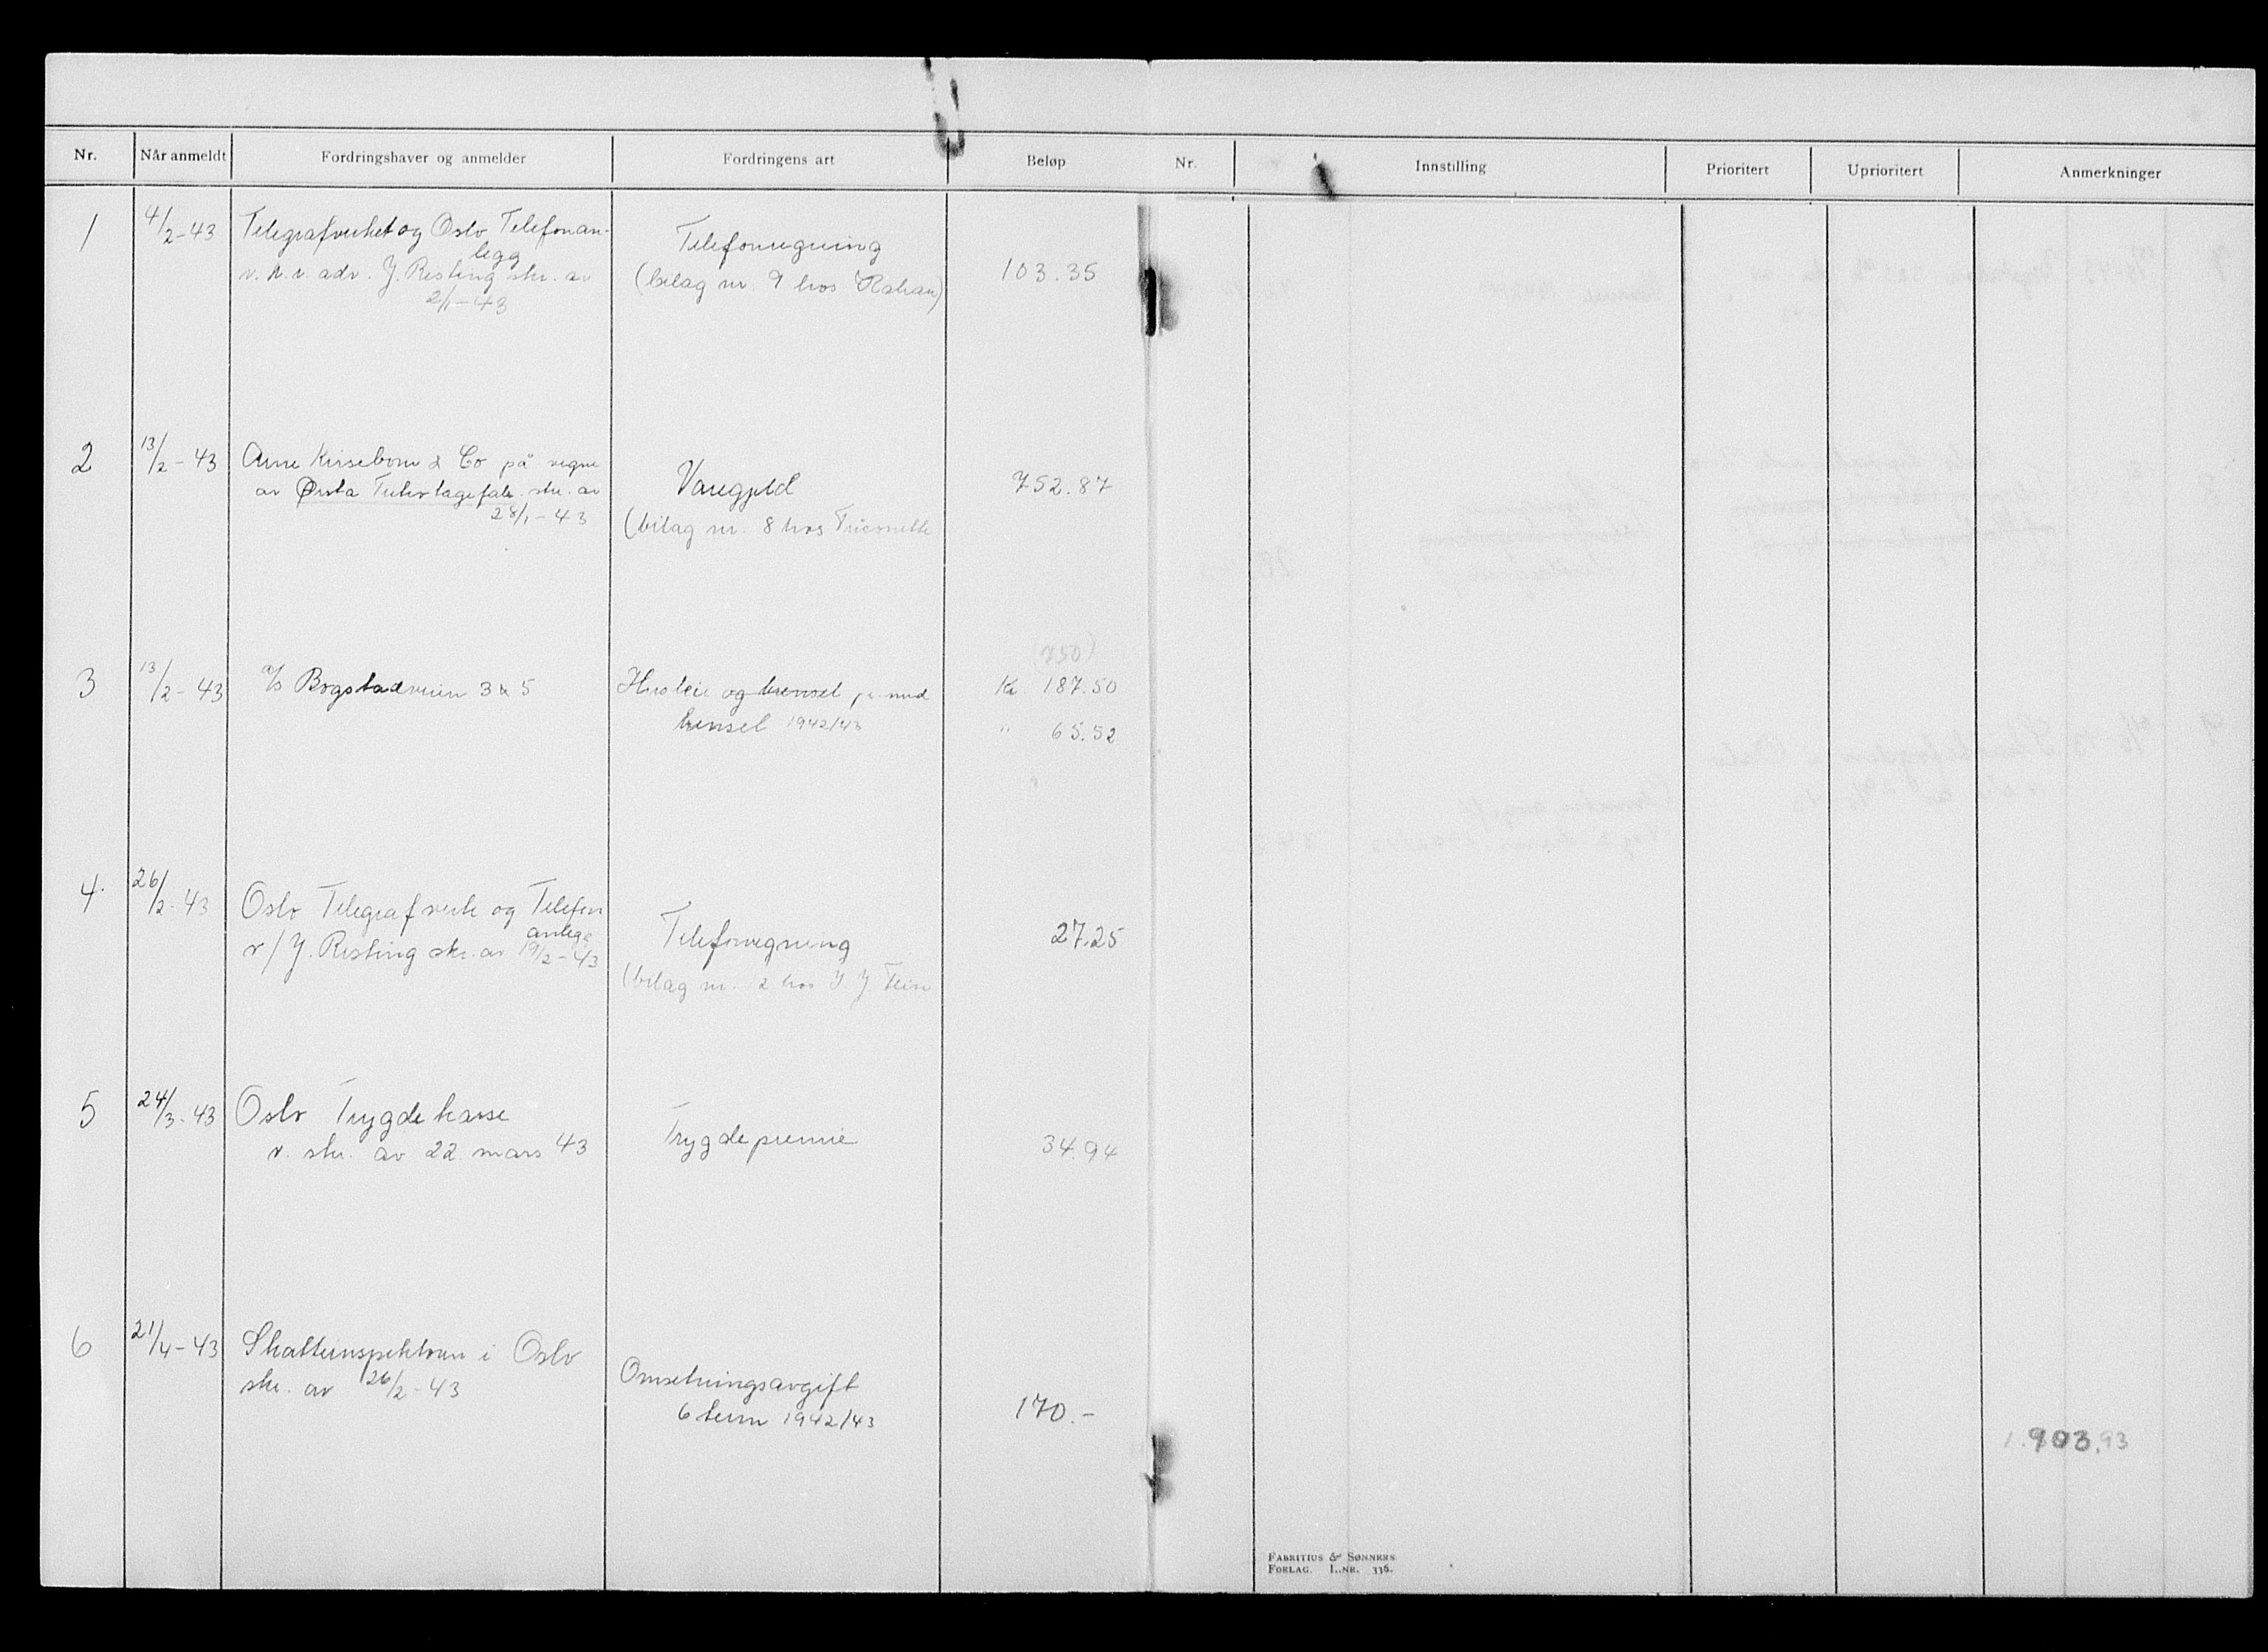 Nr. Når anmeldt Fordringshaver og anmelder Fordringens art Beløp Nr. Innstilling Prioritert Uprioritert Anmerkninger
1 4/2-43 Telegrafverket og Oslo Telefonan-
legg
v. h.r. adv. J. Risting skr. av
2/1-43
Telefonregning
(bilag nr. 9 hos Rahan)
103.35
2 13/2-43 Arne Kirsebom & Co på vegne
av Ørsta skr. av
28/1-43
Varegjeld
(bilag nr. 8 hos
752.87
3 13/2-43 a/s Bogstadveien 3 & 5
Husleie og brensel pr. mnd
brensel 1942/43
(750)
Kr. 187.50
" 65.52
4. 26/2-43 Oslo Telegrafverk og Telefon
anlegg
v/ J. Risting skr. av 19/2-43
Telefonregning
(bilag nr. 2 hos
27.25
5 24/3-43 Oslo Trygdekasse
v. skr. av 22. mars 43
Trygdepremie
34.94
6 21/4-43 Skatteinspektøren i Oslo
skr. av 26/2-43
Omsetningsavgift
6 term 1942/43
170.-
1.903,93
FABRITIUS & SØNNERS
FORLAG. L.NR. 336.